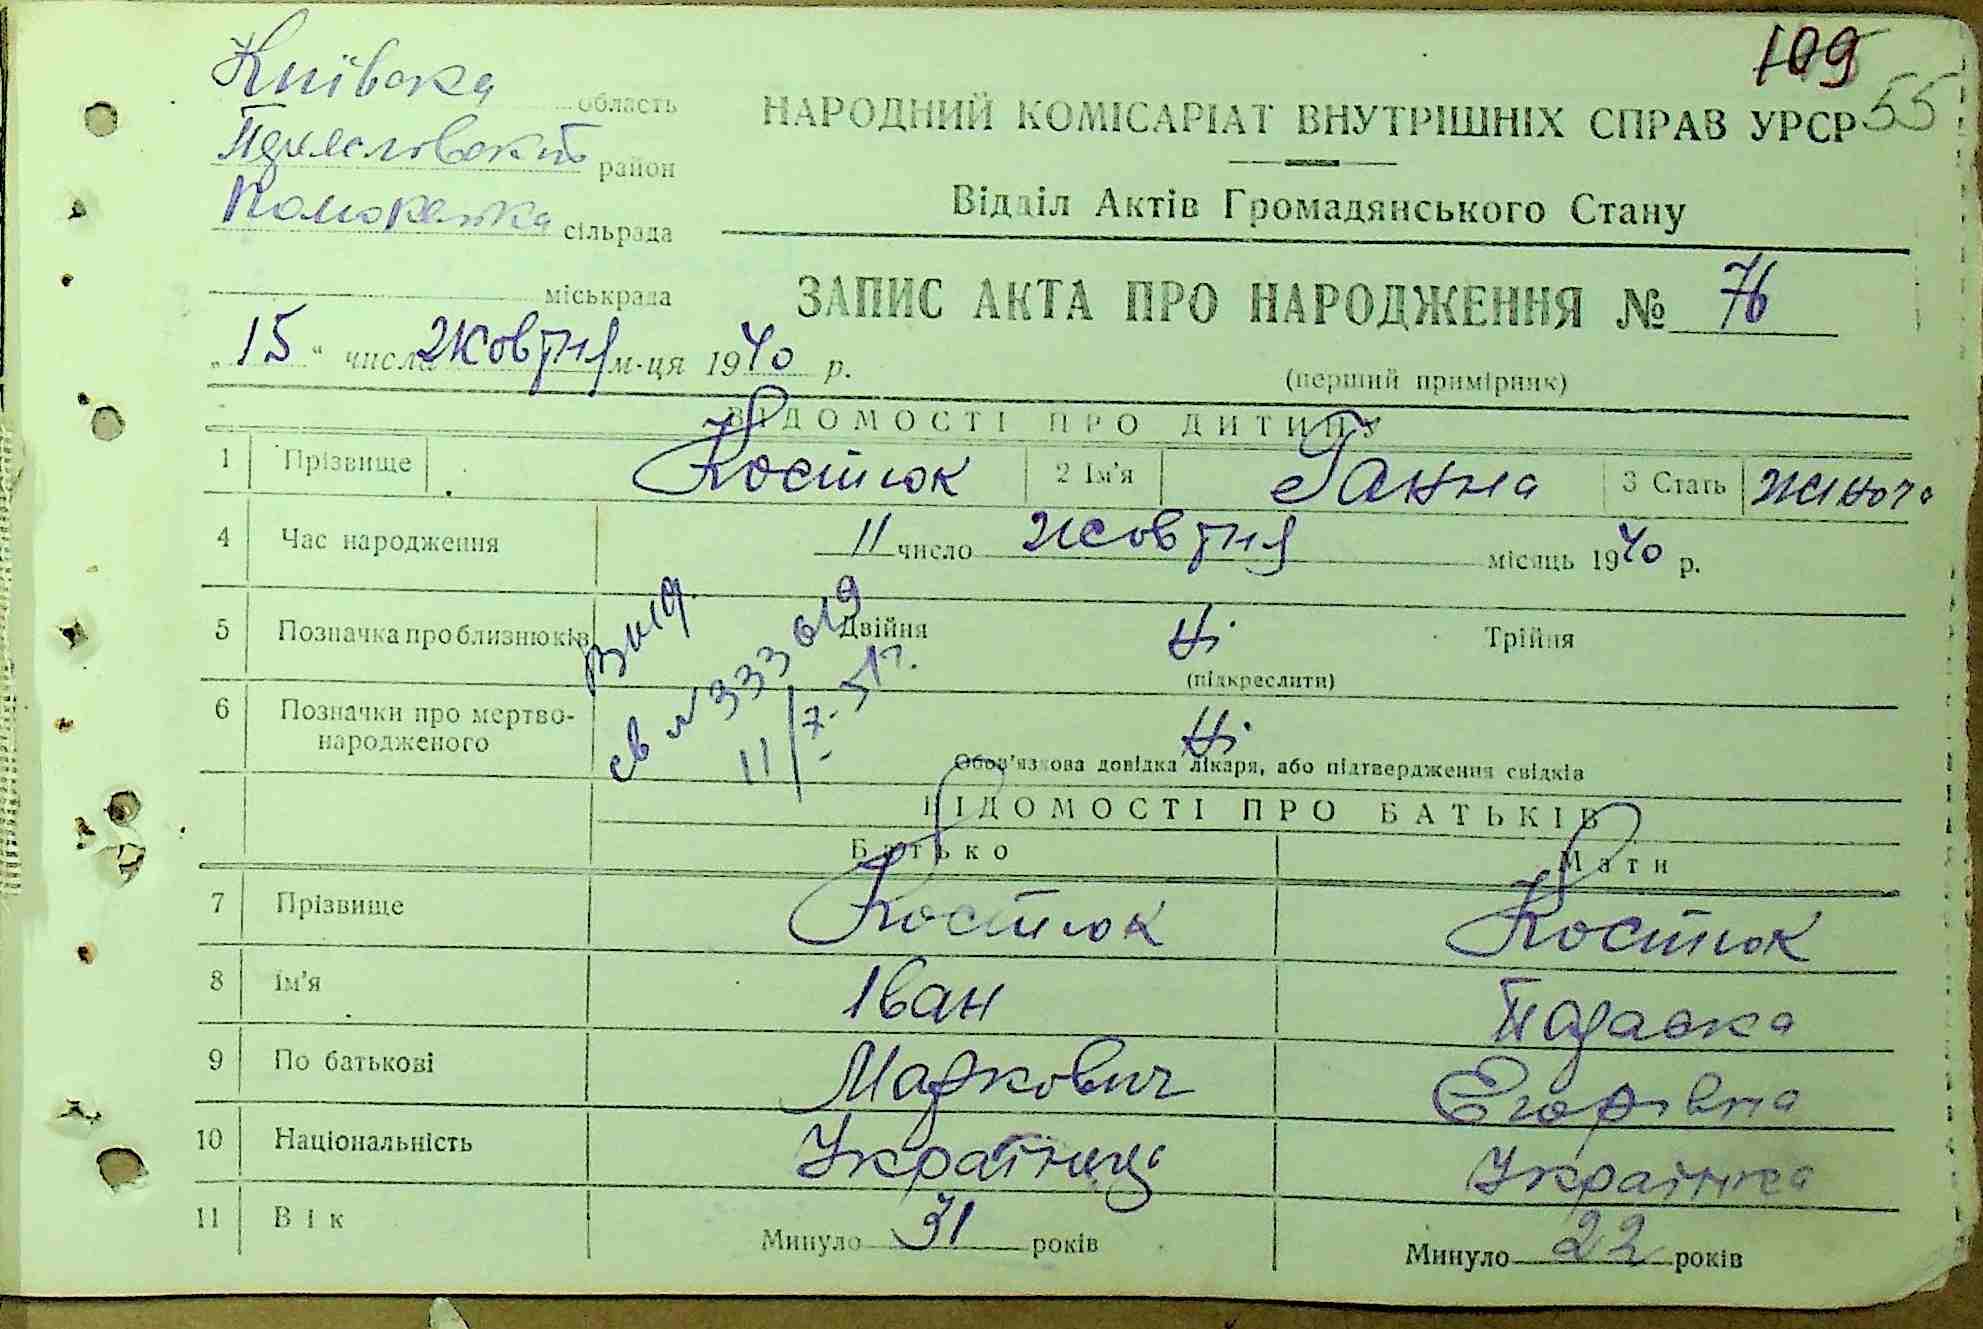 109
55
Київська область
район
сільрада
міськрада
НАРОДНИЙ КОМІСАРІАТ ВНУТРІШНІХ СПРАВ УРСР
Відділ Актів Громадянського Стану
ЗАПИС АКТА ПРО НАРОДЖЕННЯ № 76
„15“ числа жовтня м-ця 1940 р.
(перший примірник)
ВІДОМОСТІ ПРО ДИТИНУ
1 Прізвище Костюк 2 Ім'я Ганна 3 Стать жіноча
4 Час народження 11 число жовтня місяць 1940 р.
5 Позначка про близнюків Двійня Ні Трійня
(підкреслити)
св № 333619
11/7-51г.
6 Позначки про мертво-
народженого Ні
Обов'язкова довідка лікаря, або підтвердження свідків
ВІДОМОСТІ ПРО БАТЬКІВ
Батько Мати
7 Прізвище Костюк Костюк
8 Ім'я Іван Параска
9 По батькові Маркович Єгорівна
10 Національність Українець Українка
11 Вік Минуло 31 років Минуло 22 років